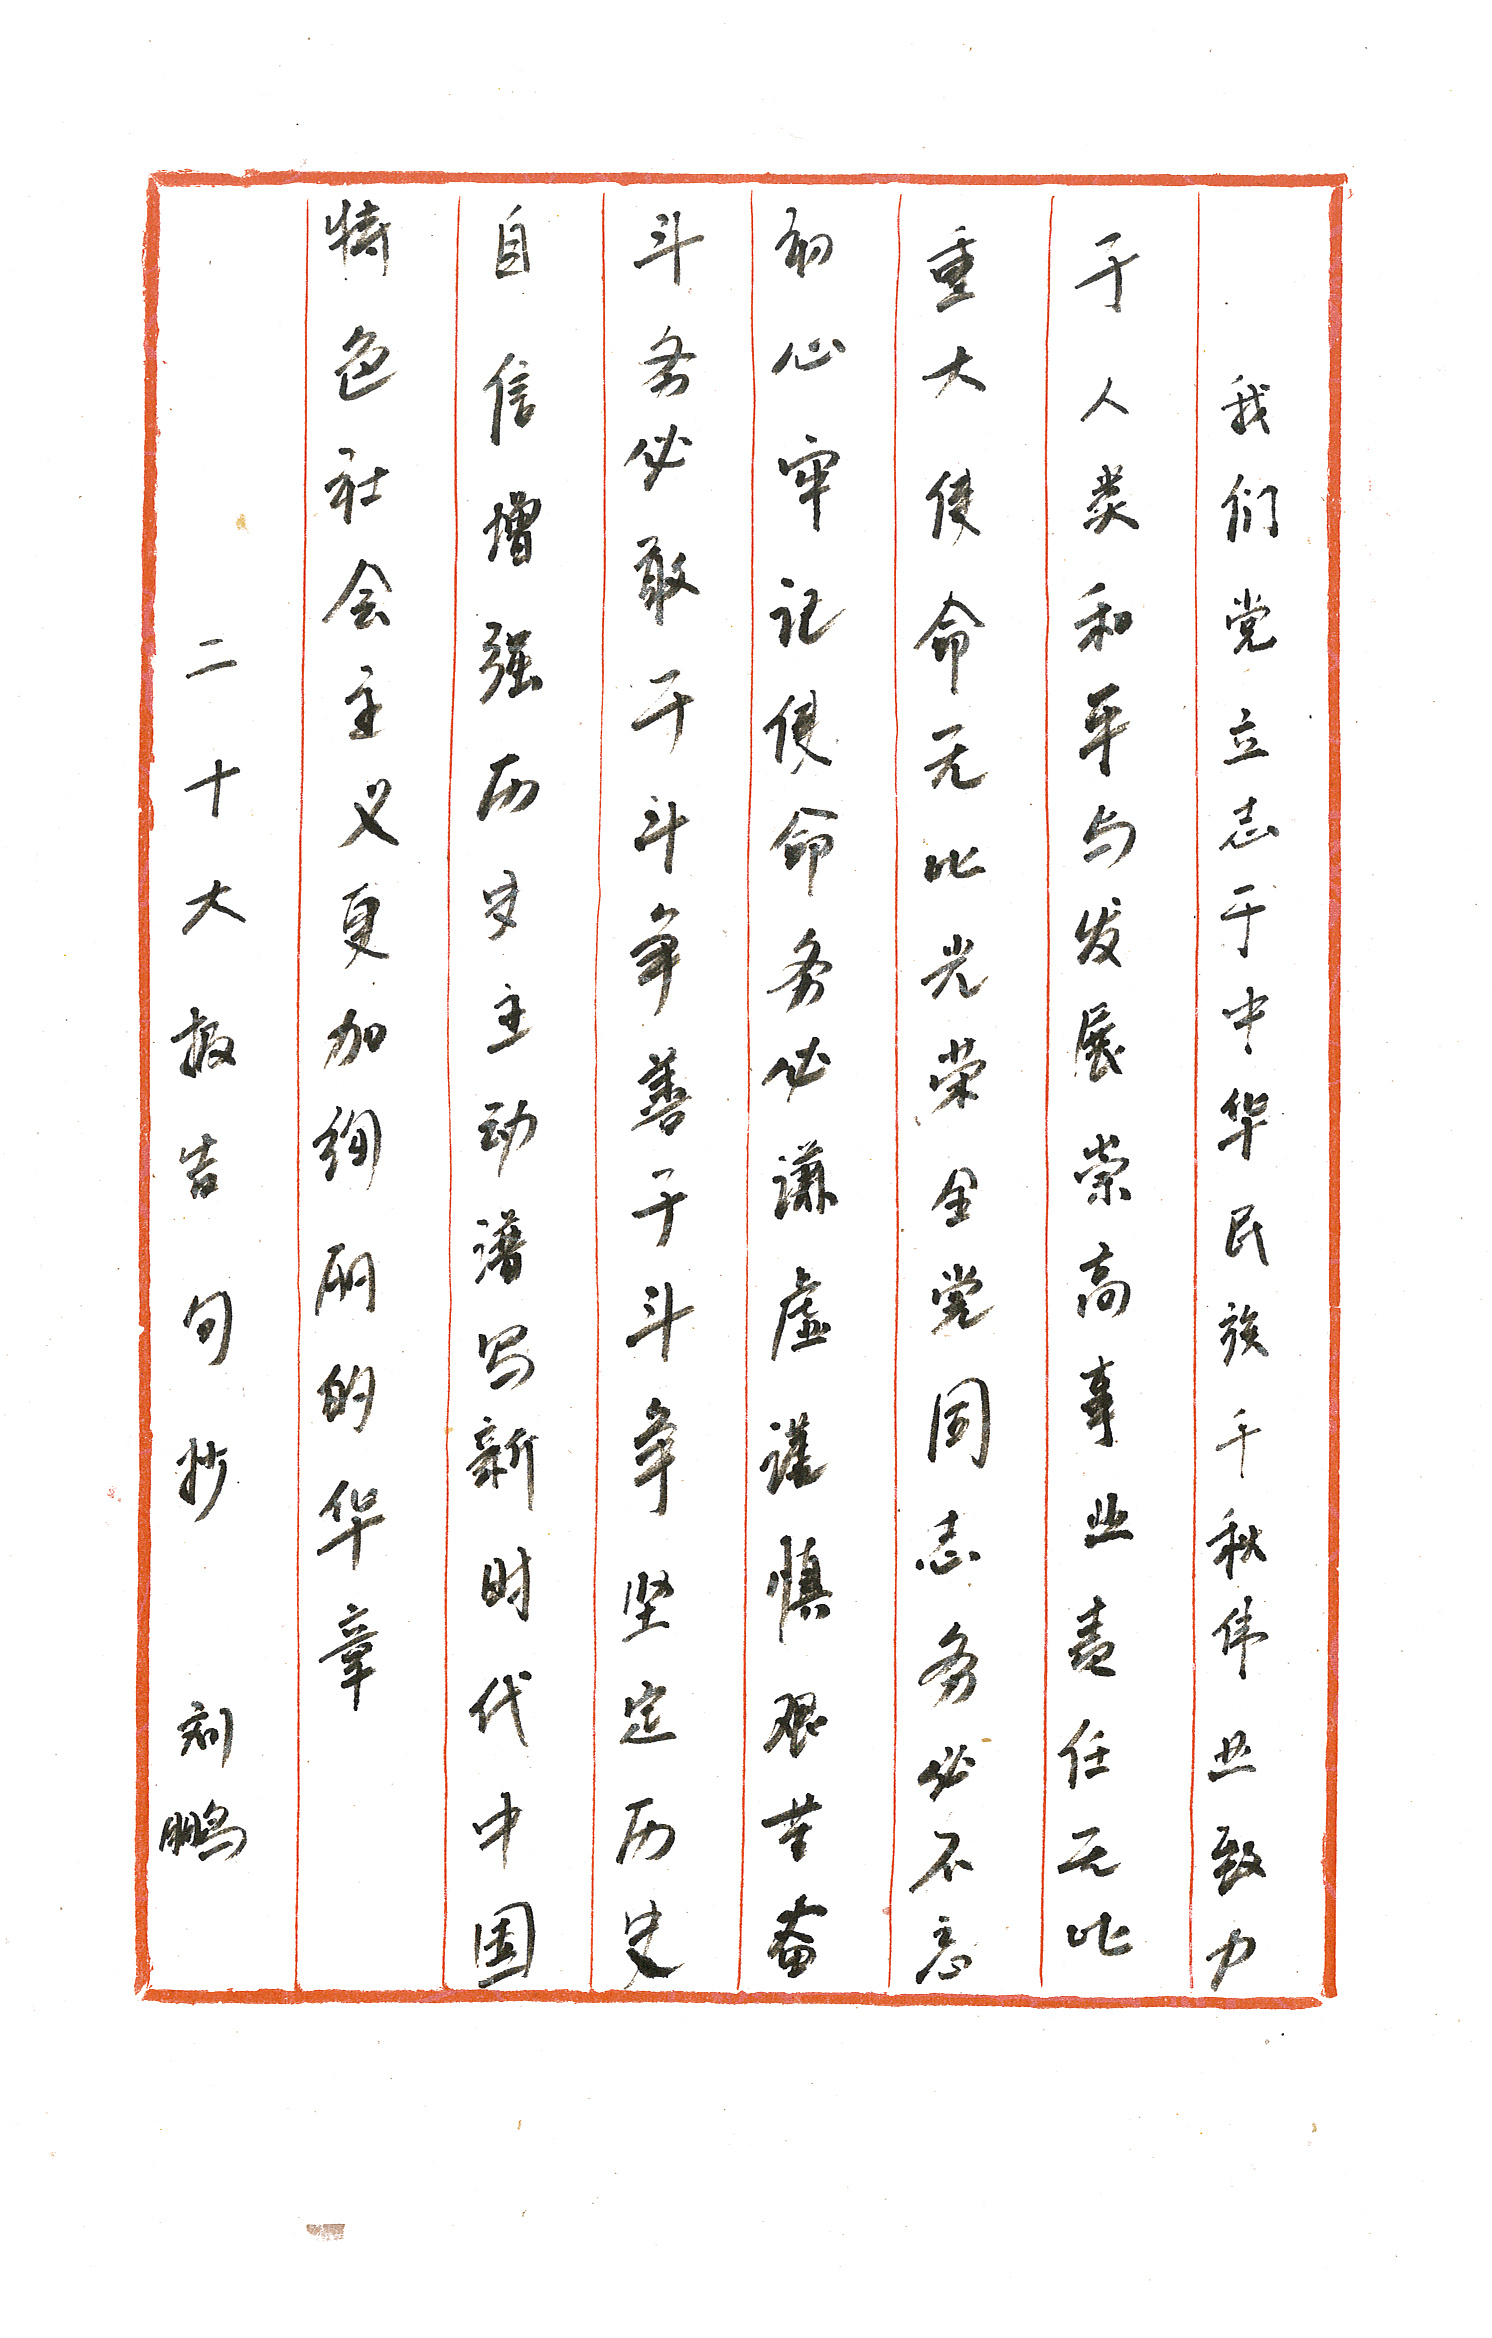 我们党立志于中华民族千秋伟业致力
于人类和平与发展崇高事业责任无比
重大使命无比光荣全党同志务必不忘
初心牢记使命务必谦虚谨慎艰苦奋
斗务必敢于斗争善于斗争坚定历史
自信增强历史主动谱写新时代中国
特色社会主义更加绚丽的华章
二十大报告句抄 刘鹏